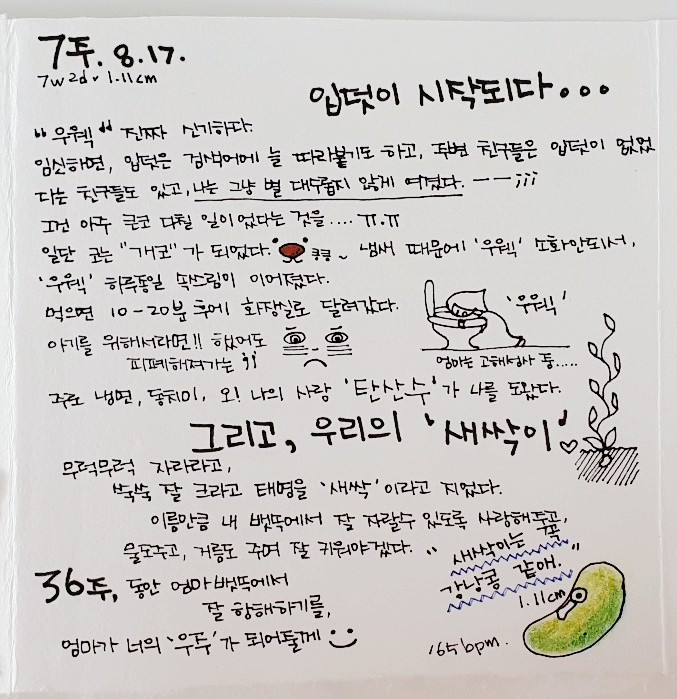 7주. 8.17.
7w2d. 1.11cm
입덧이 시작되다...
"우웩" 진짜 신기하다.
임신하면, 입덧은 검색어에 늘 따라붙기도 하고, 주변 친구들은 입덧이 없었
다는 친구들도 있고, 나는 그냥 별 대수롭지 않게 여겼다. ㅡㅡ;;;
그건 아주 큰코 다칠 일이었다는 것을.... ㅠ.ㅠ
일단 코는 "개코"가 되었다. 킁킁~ 냄새 때문에 '우웩' 소화안되서,
'우웩' 하루종일 속쓰림이 이어졌다.
먹으면 10-20분 후에 화장실로 달려갔다.
'우웩'
아기를 위해서라면!! 했어도
피폐해져가는 ;;
엄마는 고해성사 중.....
주로 냉면, 동치미, 오! 나의 사랑 '탄산수'가 나를 도왔다.
그리고, 우리의 '새싹이'♡
무럭무럭 자라라고,
쑥쑥 잘 크라고 태명을 '새싹'이라고 지었다.
이름만큼 내 뱃속에서 잘 자랄수 있도록 사랑해주고,
물도주고, 거름도 주며 잘 키워야겠다.
"새싹이는 꼭
강낭콩 같아."
1.11cm
165bpm.
36주, 동안 엄마뱃속에서
잘 항해하기를,
엄마가 너의 '우주'가 되어줄께